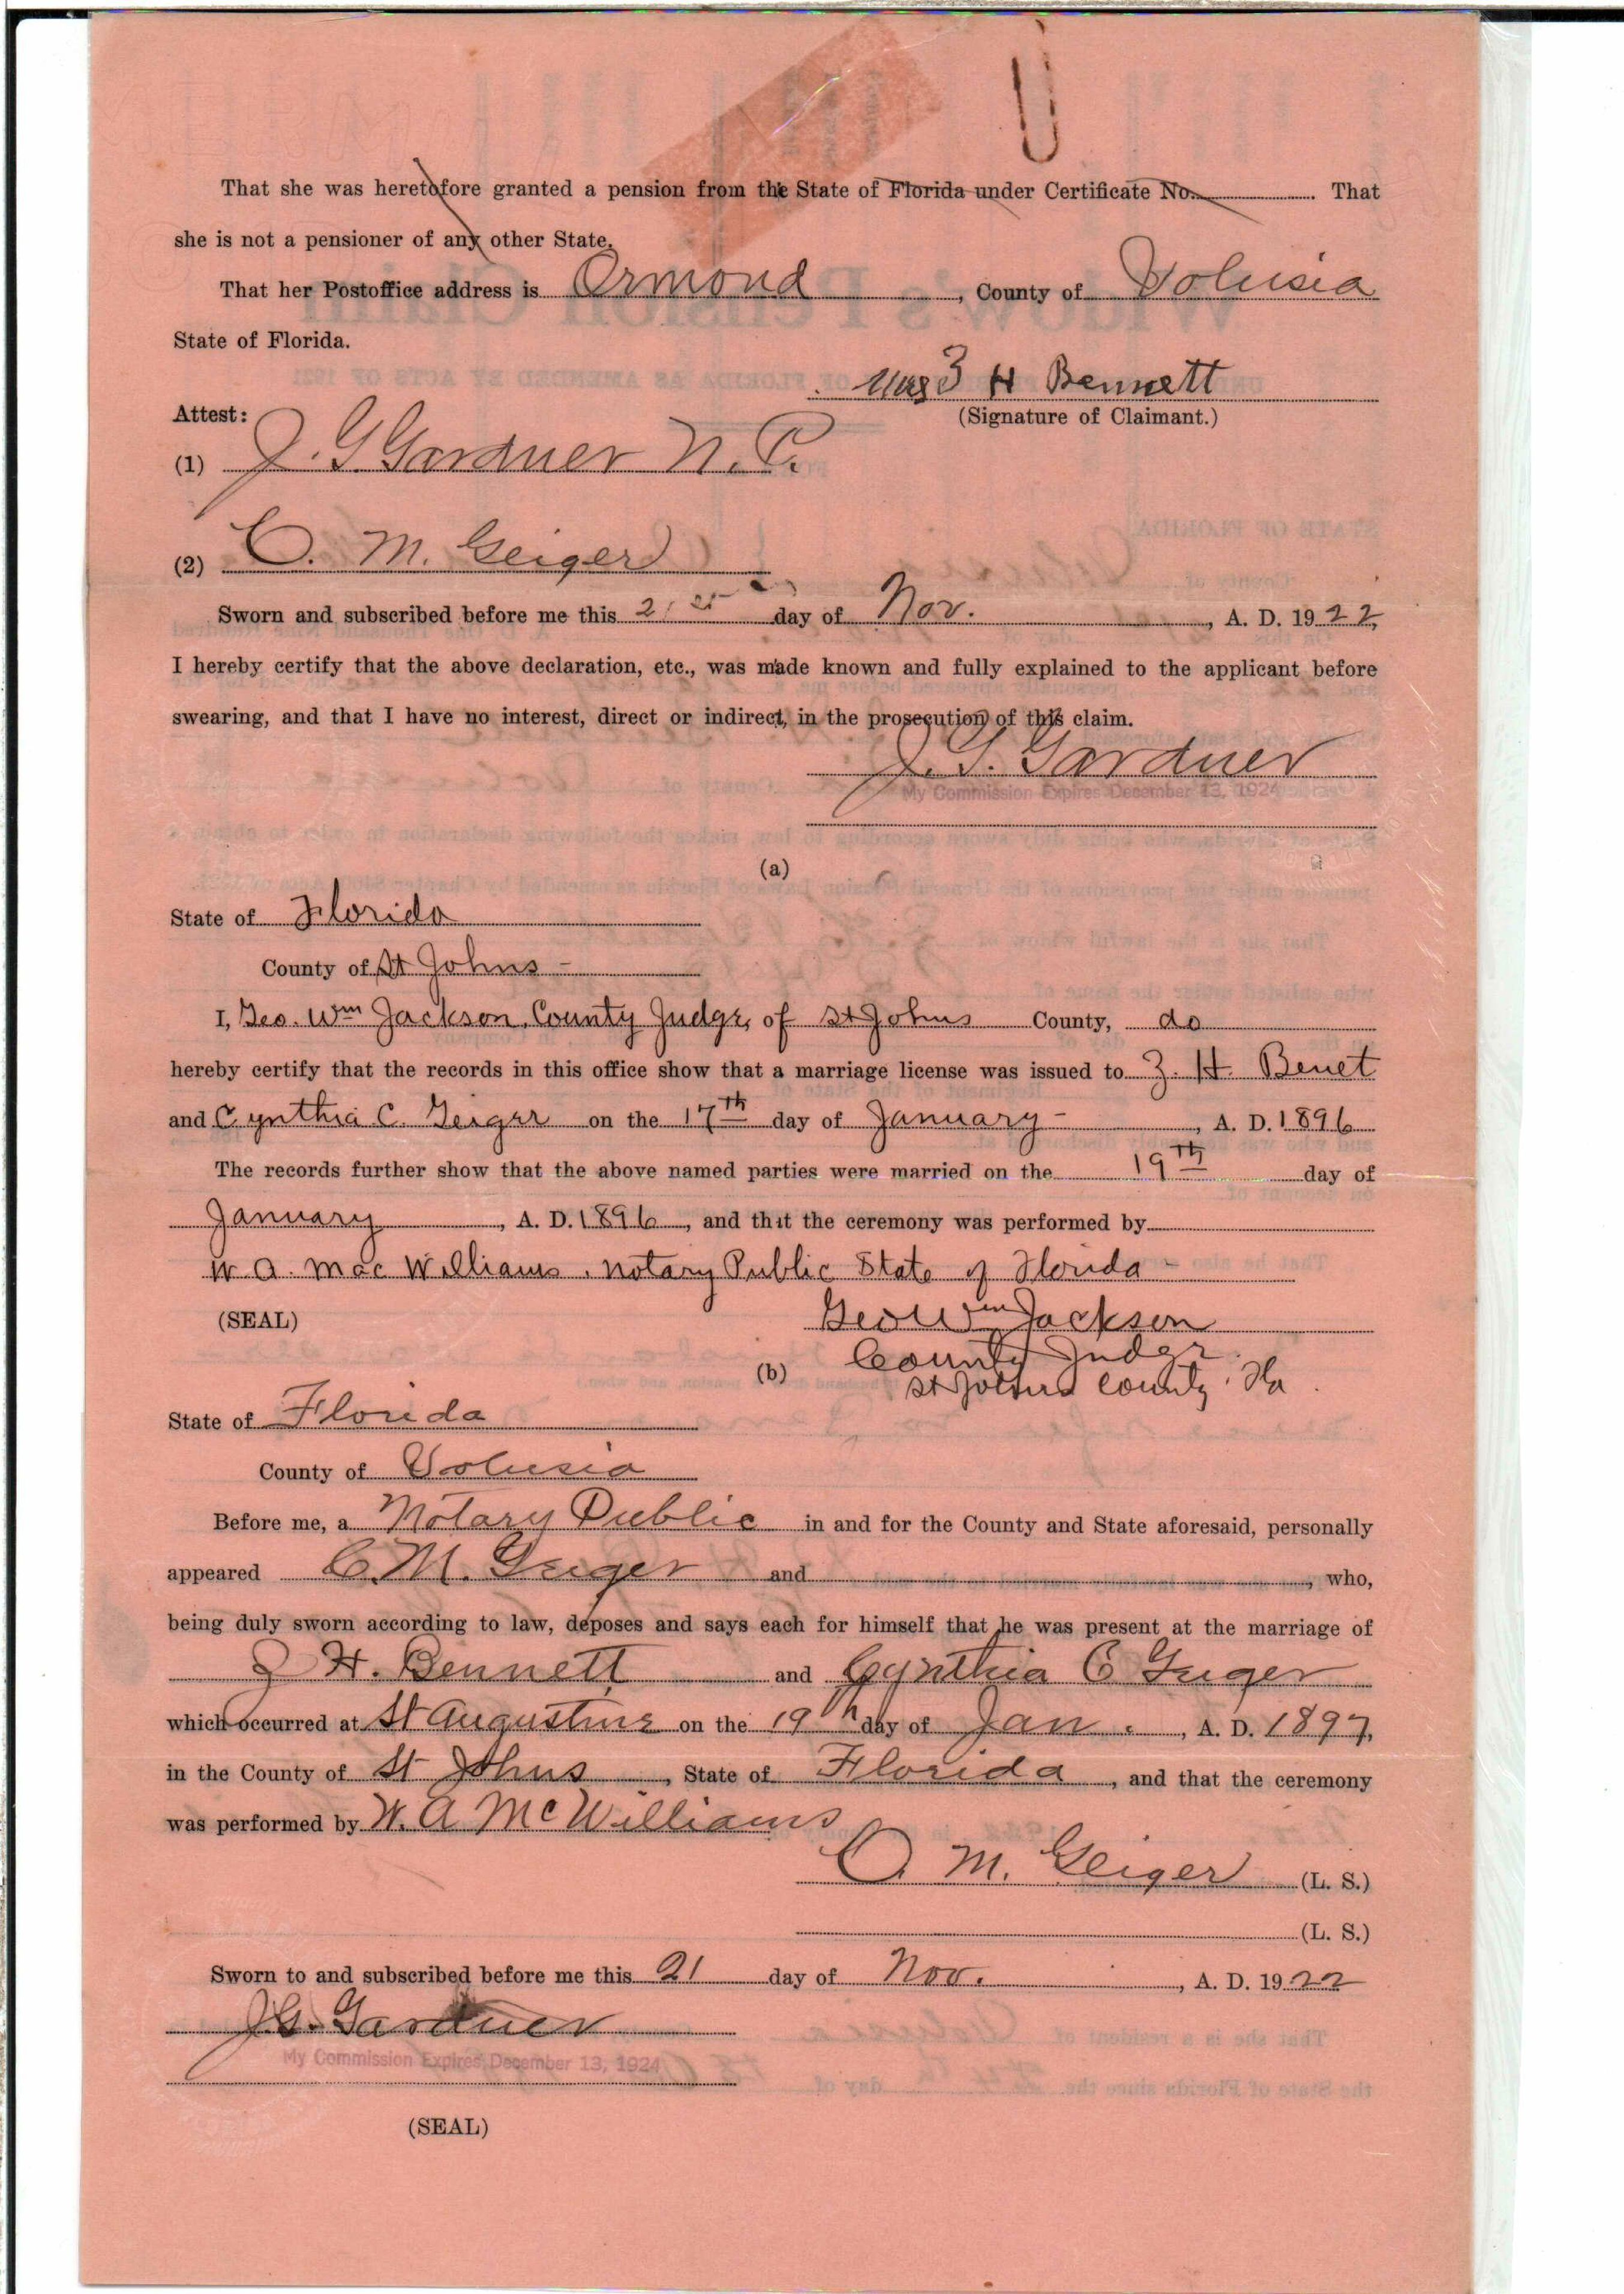 That she was heretofore granted a pension from the State of Florida under Certificate No. That
she is not a pensioner of any other State.
That her Postoffice address is Ormond, County of Volusia
State of Florida.
Mrs Z H Bennett
Attest: (Signature of Claimant.)
(1) J. G. Gardner N. P.
(2) C. M. Geiger
Sworn and subscribed before me this 21st day of Nov., A. D. 1922,
I hereby certify that the above declaration, etc., was made known and fully explained to the applicant before
swearing, and that I have no interest, direct or indirect, in the prosecution of this claim.
J. G. Gardner
My Commission Expires December 13, 1924
(a)
State of Florida
County of St Johns -
I, Geo. Wm Jackson, County Judge, of St Johns County, do
hereby certify that the records in this office show that a marriage license was issued to Z. H. Benet
and Cynthia C. Geiger on the 17th day of January -, A. D. 1896
The records further show that the above named parties were married on the 19th day of
January, A. D. 1896, and that the ceremony was performed by
W. A. Mac Williams, Notary Public State of Florida -
(SEAL) Geo Wm Jackson
(b) County Judge
St Johns County, Fla.
State of Florida
County of Volusia
Before me, a Notary Public in and for the County and State aforesaid, personally
appeared C. M. Geiger and, who,
being duly sworn according to law, deposes and says each for himself that he was present at the marriage of
Z H. Bennett and Cynthia C Geiger
which occurred at St Augustine on the 19th day of Jan., A. D. 1897,
in the County of St Johns, State of Florida, and that the ceremony
was performed by W. A McWilliams
C. M. Geiger (L. S.)
(L. S.)
Sworn to and subscribed before me this 21 day of Nov., A. D. 1922
J. G. Gardner
My Commission Expires December 13, 1924
(SEAL)